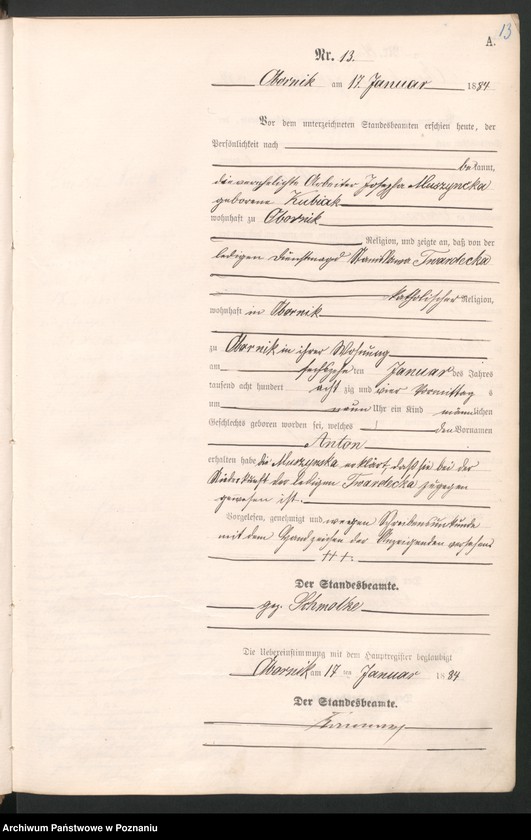 13
A.
Nr. 13.
Obornik am 17. Januar 1884
Vor dem unterzeichneten Standesbeamten erschien heute, der
Persönlichkeit nach
bekannt,
die verehelichte Arbeiter Josepha Muszynska
geborene Kubiak
wohnhaft zu Obornik
Religion, und zeigte an, daß von der
ledigen Dienstmagd Stanislawa Twardecka
katholischer Religion,
wohnhaft in Obornik
zu Obornik in ihrer Wohnung
am sechszehnten Januar des Jahres
tausend acht hundert acht zig und vier Vormittag s
um neun Uhr ein Kind männlichen
Geschlechts geboren worden sei, welches den Vornamen
Anton
erhalten habe die Muszynska erklärt, daß sie bei der
Niederkunft der ledigen Twardecka zugegen
gewesen ist.
Vorgelesen, genehmigt und wegen Schreibensunkunde
mit dem Handzeichen der Anzeigenden versehen
+++
Der Standesbeamte.
gez. Schmolke
Die Uebereinstimmung mit dem Hauptregister beglaubigt
Obornik am 17 ten Januar 1884
Der Standesbeamte.
Archiwum Państwowe w Poznaniu